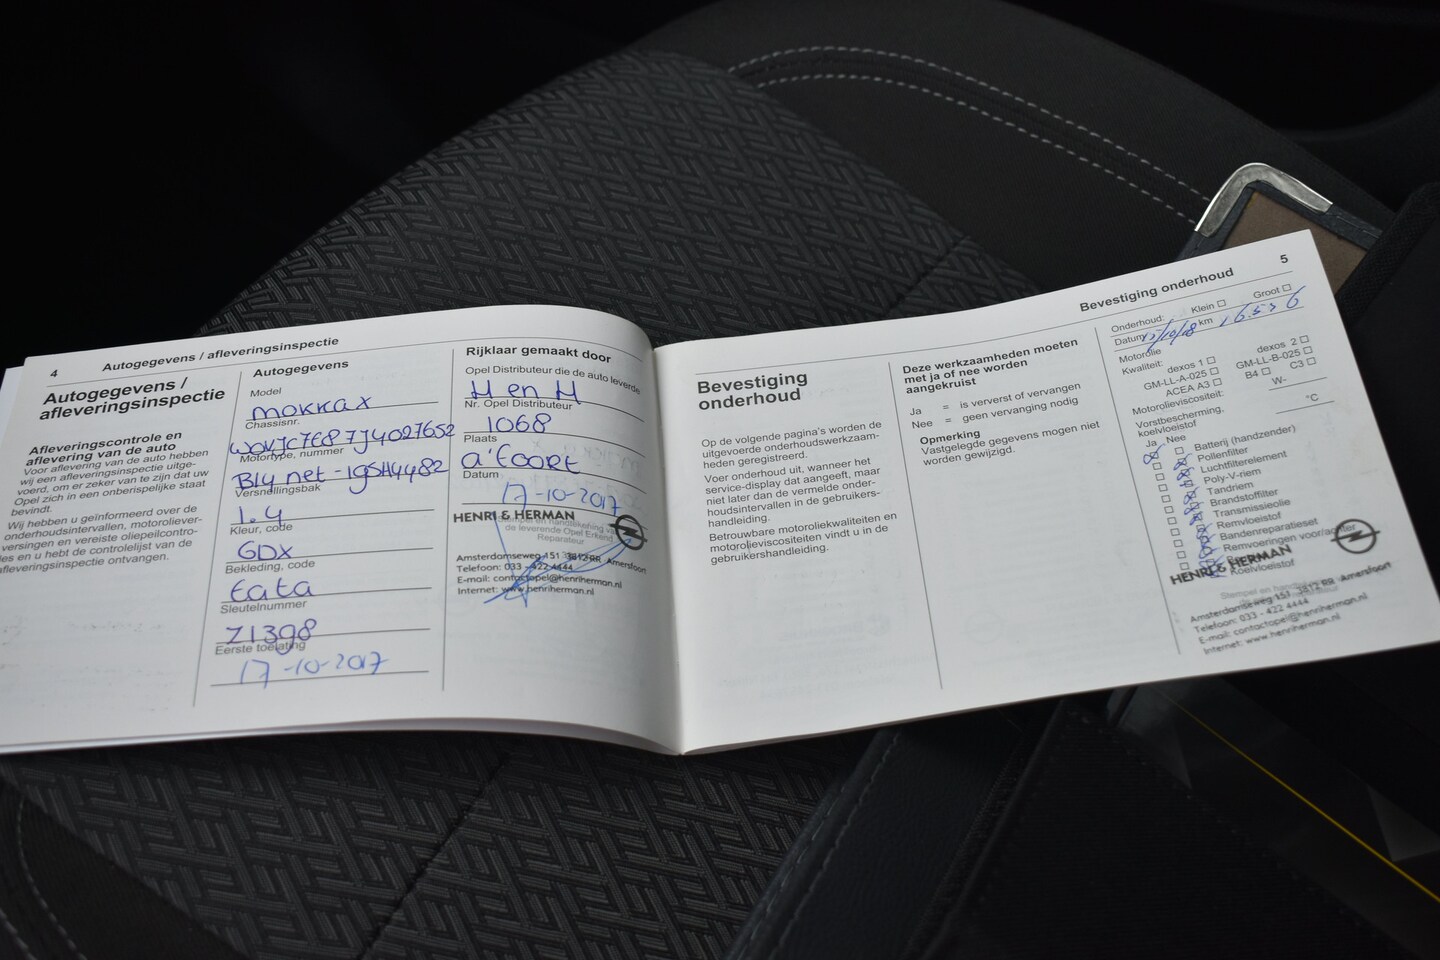 4
Autogegevens / afleveringsinspectie
Autogegevens /
afleveringsinspectie
Afleveringscontrole en
aflevering van de auto
Voor aflevering van de auto hebben
wij een afleveringsinspectie uitge-
voerd, om er zeker van te zijn dat uw
Opel zich in een onberispelijke staat
bevindt.
Wij hebben u geïnformeerd over de
onderhoudsintervallen, motoroliever-
versingen en vereiste oliepeilcontro-
les en u hebt de controlelijst van de
afleveringsinspectie ontvangen.
Autogegevens
Model
mokka x
Chassisnr.
W0VJC7E87J4027652
Motortype, nummer
B14net - 19SH4482
Versnellingsbak
1.4
Kleur, code
GDX
Bekleding, code
tata
Sleutelnummer
Z1398
Eerste toelating
17-10-2017
Rijklaar gemaakt door
Opel Distributeur die de auto leverde
H en H
Nr. Opel Distributeur
1068
Plaats
a'foort
Datum
17-10-2017
HENRI & HERMAN
Stempel en handtekening van
de leverende Opel Erkend
Reparateur
Amsterdamseweg 151 3812 RR Amersfoort
Telefoon: 033 - 422 4444
E-mail: contactopel@henriherman.nl
Internet: www.henriherman.nl
Bevestiging onderhoud
5
Bevestiging
onderhoud
Op de volgende pagina's worden de
uitgevoerde onderhoudswerkzaam-
heden geregistreerd.
Voer onderhoud uit, wanneer het
service-display dat aangeeft, maar
niet later dan de vermelde onder-
houdsintervallen in de gebruikers-
handleiding.
Betrouwbare motoroliekwaliteiten en
motorolieviscositeiten vindt u in de
gebruikershandleiding.
Deze werkzaamheden moeten
met ja of nee worden
aangekruist
Ja = is ververst of vervangen
Nee = geen vervanging nodig
Opmerking
Vastgelegde gegevens mogen niet
worden gewijzigd.
Onderhoud: Klein Groot
Datum km 16.536
Motorolie
Kwaliteit: dexos 1 dexos 2
GM-LL-A-025 GM-LL-B-025
ACEA A3 B4 C3
Motorolieviscositeit: W-
Vorstbescherming,
koelvloeistof °C
Ja Nee
Batterij (handzender)
Pollenfilter
Luchtfilterelement
Poly-V-riem
Tandriem
Brandstoffilter
Transmissieolie
Remvloeistof
Bandenreparatieset
Remvoeringen voor/achter
Koelvloeistof
HENRI & HERMAN
Amsterdamseweg 151 3812 RR Amersfoort
Telefoon: 033 - 422 4444
E-mail: contactopel@henriherman.nl
Internet: www.henriherman.nl